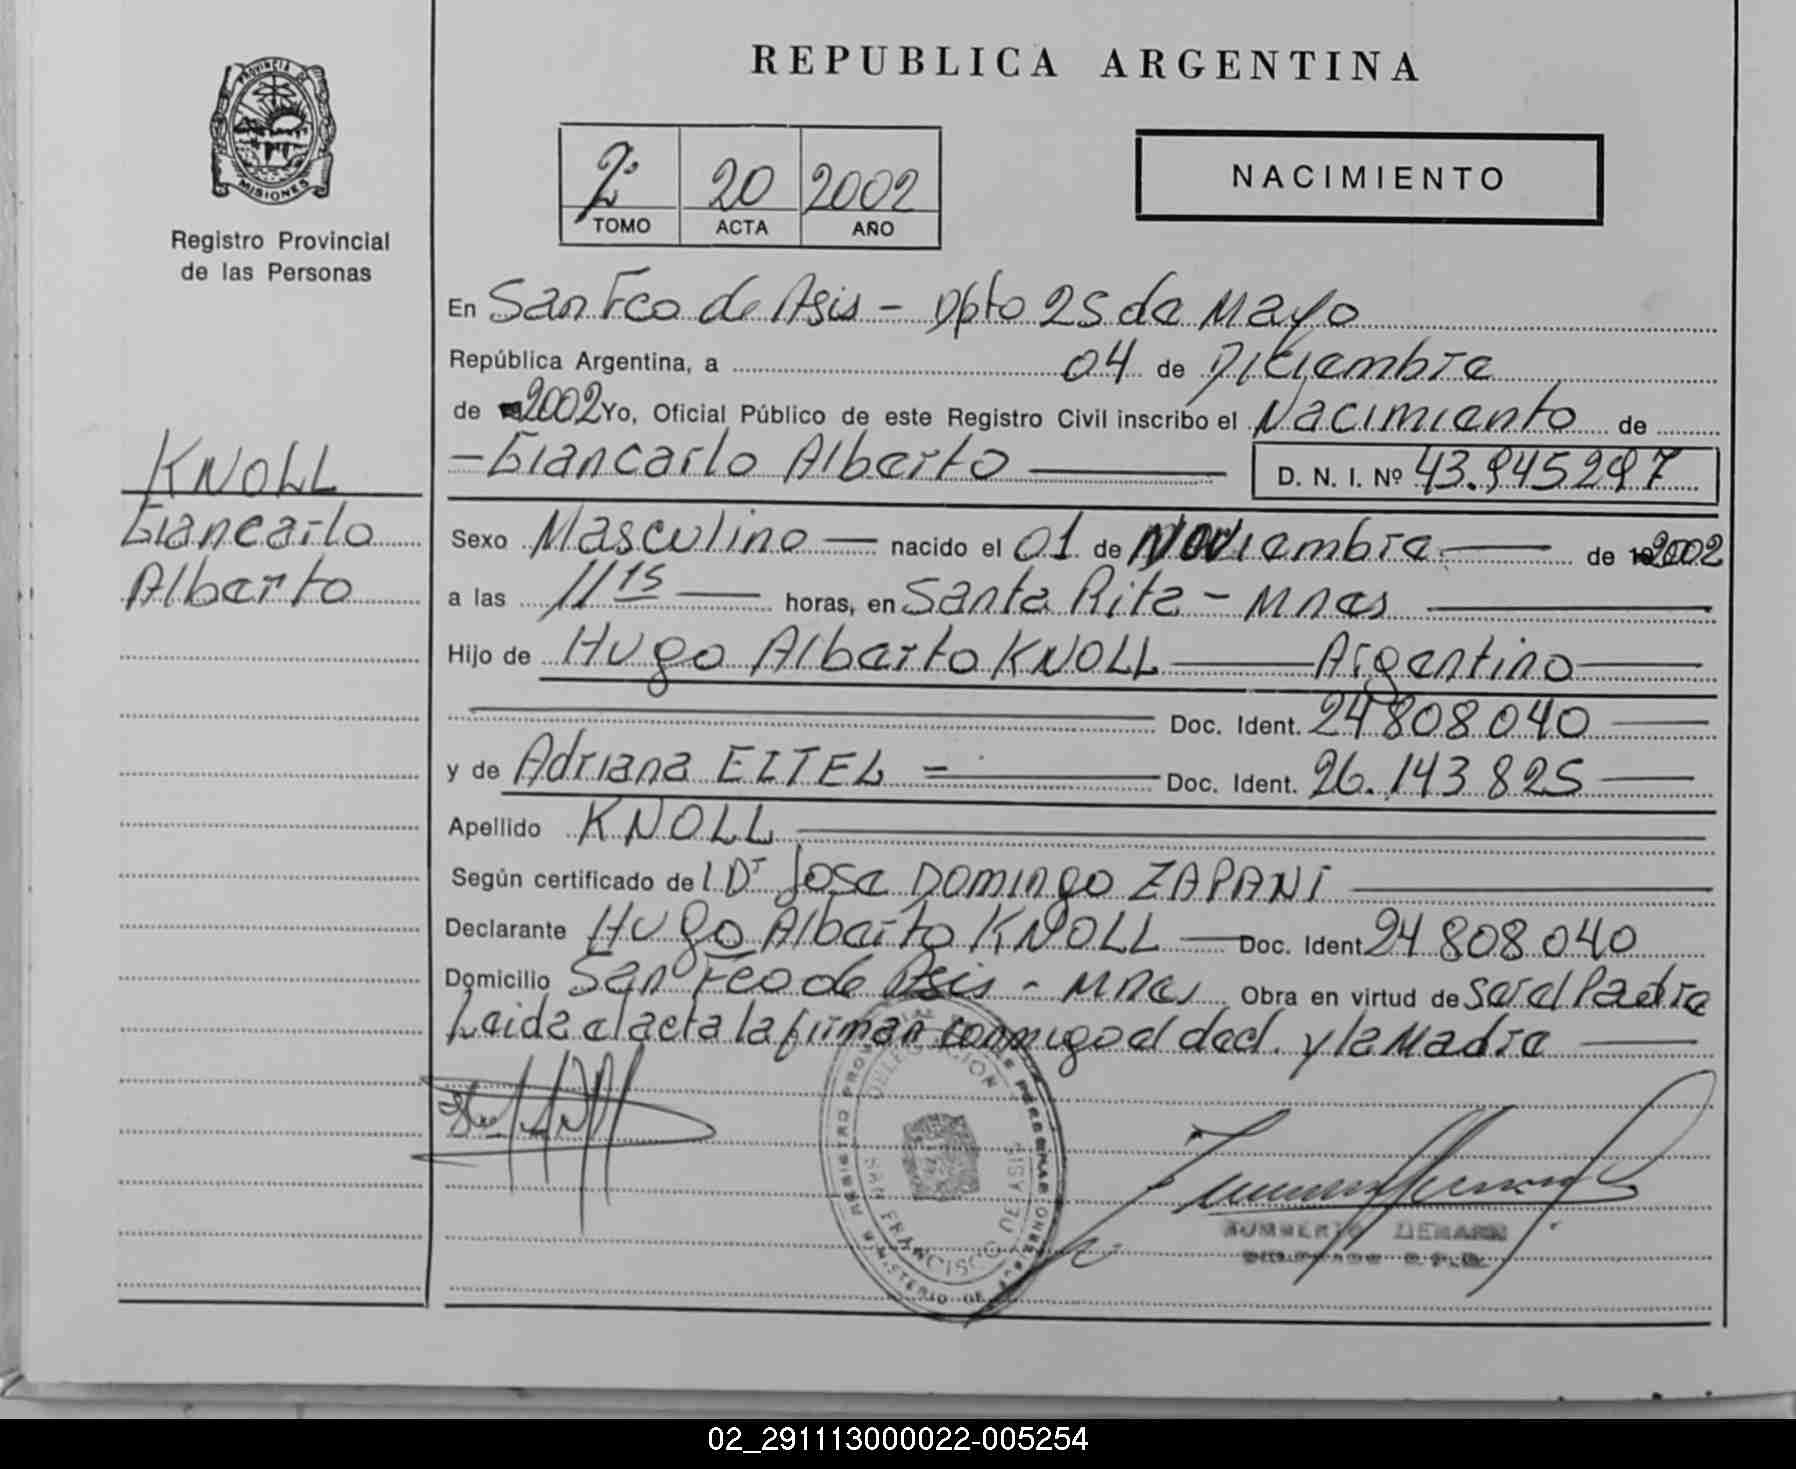 PROVINCIA DE
MISIONES
Registro Provincial
de las Personas
KNOLL
Giancarlo
Alberto
REPUBLICA ARGENTINA
2º 20 2002
TOMO ACTA AÑO
NACIMIENTO
En San Fco de Asis - Dpto 25 de Mayo
República Argentina, a 04 de Diciembre
de 2002 Yo, Oficial Público de este Registro Civil inscribo el Nacimiento de
- Giancarlo Alberto D. N. I. Nº 43.945297
Sexo Masculino nacido el 01 de Noviembre de 2002
a las 11 15 horas, en Santa Rita - Mnes
Hijo de Hugo Alberto KNOLL Argentino
Doc. Ident. 24808040
y de Adriana EITEL - Doc. Ident. 26.143825
Apellido KNOLL
Según certificado del Dr Jose Domingo ZAPANI
Declarante Hugo Alberto KNOLL Doc. Ident 24808040
Domicilio San Fco de Asis - Mnes Obra en virtud de ser el Padre
Leida el acta la firman conmigo el decl. y la Madre
DELEGACION
SAN FRANCISCO DE ASIS
MINISTERIO DE
02_291113000022-005254